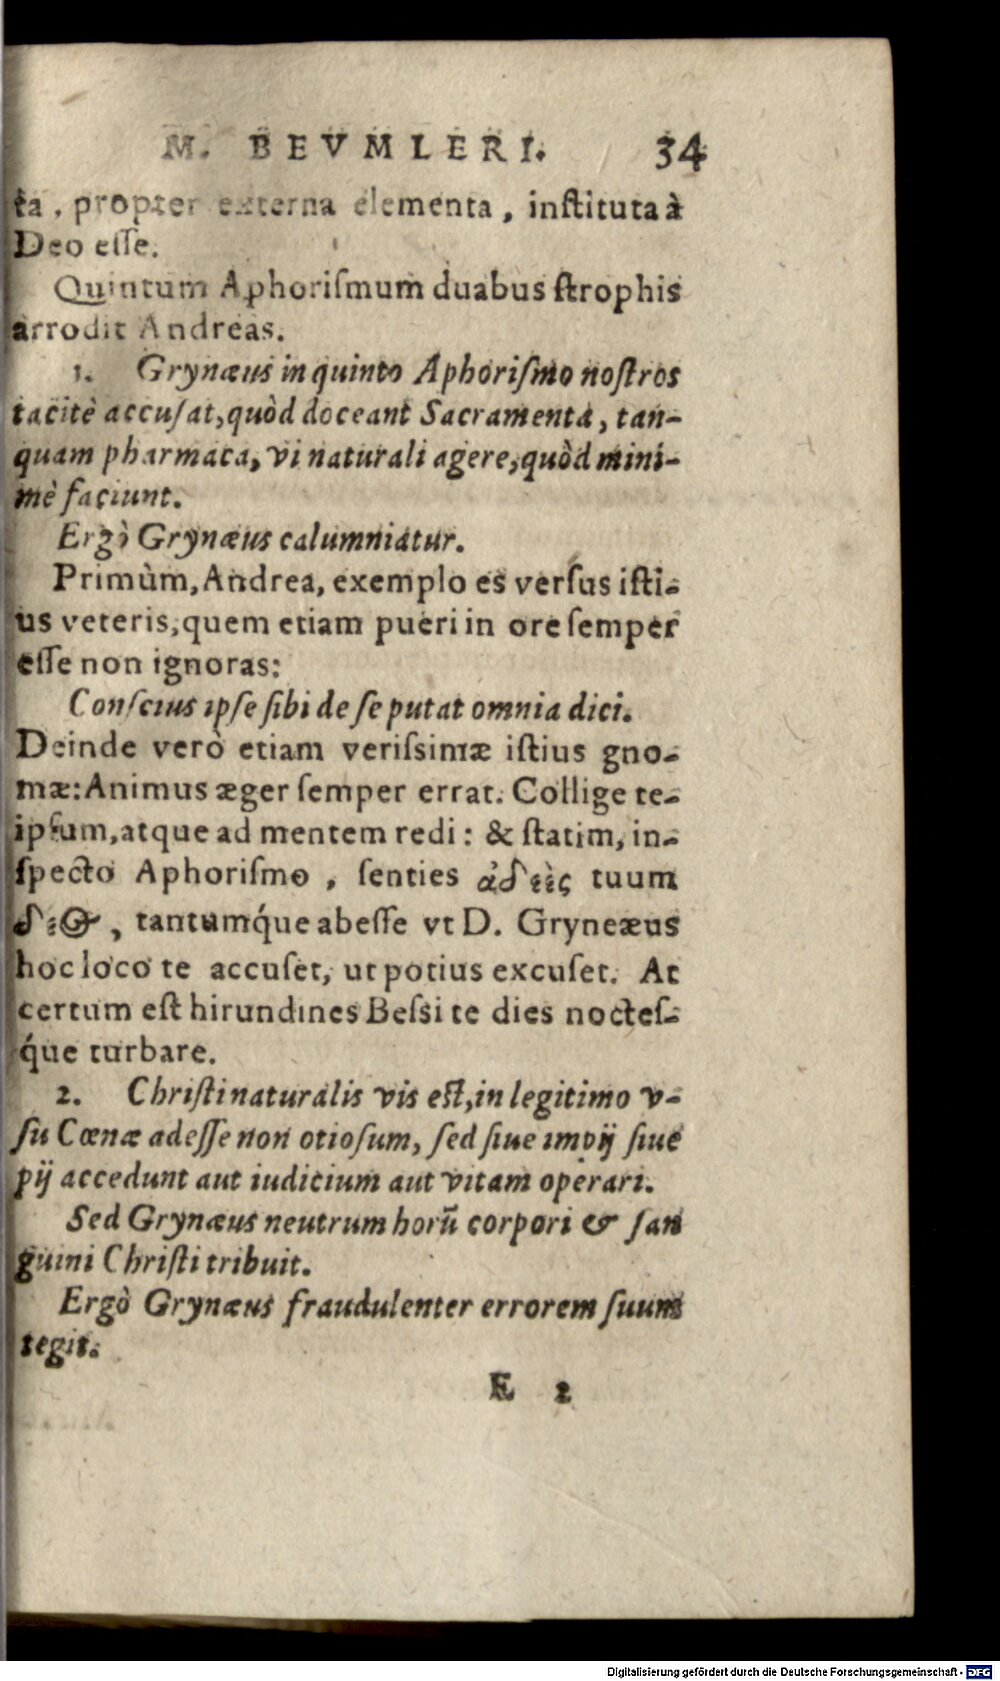 M. BEVMLERI. 34
ta, propter externa elementa, inſtituta à
Deo eſſe.
Quintum Aphoriſmum duabus ſtrophis
arrodit Andreas.
1. Grynæus in quinto Aphoriſmo noſtros
tacitè accuſat, quòd doceant Sacramenta, tan-
quam pharmaca, vi naturali agere, quòd mini-
mè faciunt.
Ergò Grynæus calumniatur.
Primùm, Andrea, exemplo es verſus iſti-
us veteris, quem etiam pueri in ore ſemper
eſſe non ignoras:
Conſcius ipſe ſibi de ſe putat omnia dici.
Deinde verò etiam veriſsimæ iſtius gno-
mæ: Animus æger ſemper errat. Collige te-
ipſum, atque ad mentem redi: & ſtatim, in-
ſpecto Aphoriſmo, ſenties ἀδεὲς tuum
δέος, tantumq́ue abeſſe vt D. Gryneæus
hoc loco te accuſet, ut potius excuſet. At
certum eſt hirundines Beſsi te dies nocteſ-
q́ue turbare.
2. Chriſti naturalis vis eſt, in legitimo v-
ſu Cœnæ adeſſe non otioſum, ſed ſiue impij ſiue
pij accedunt aut iudicium aut vitam operari.
Sed Grynæus neutrum horũ corpori & ſan
guini Chriſti tribuit.
Ergò Grynæus fraudulenter errorem ſuum
tegit.
E 2
Digitalisierung gefördert durch die Deutsche Forschungsgemeinschaft - DFG